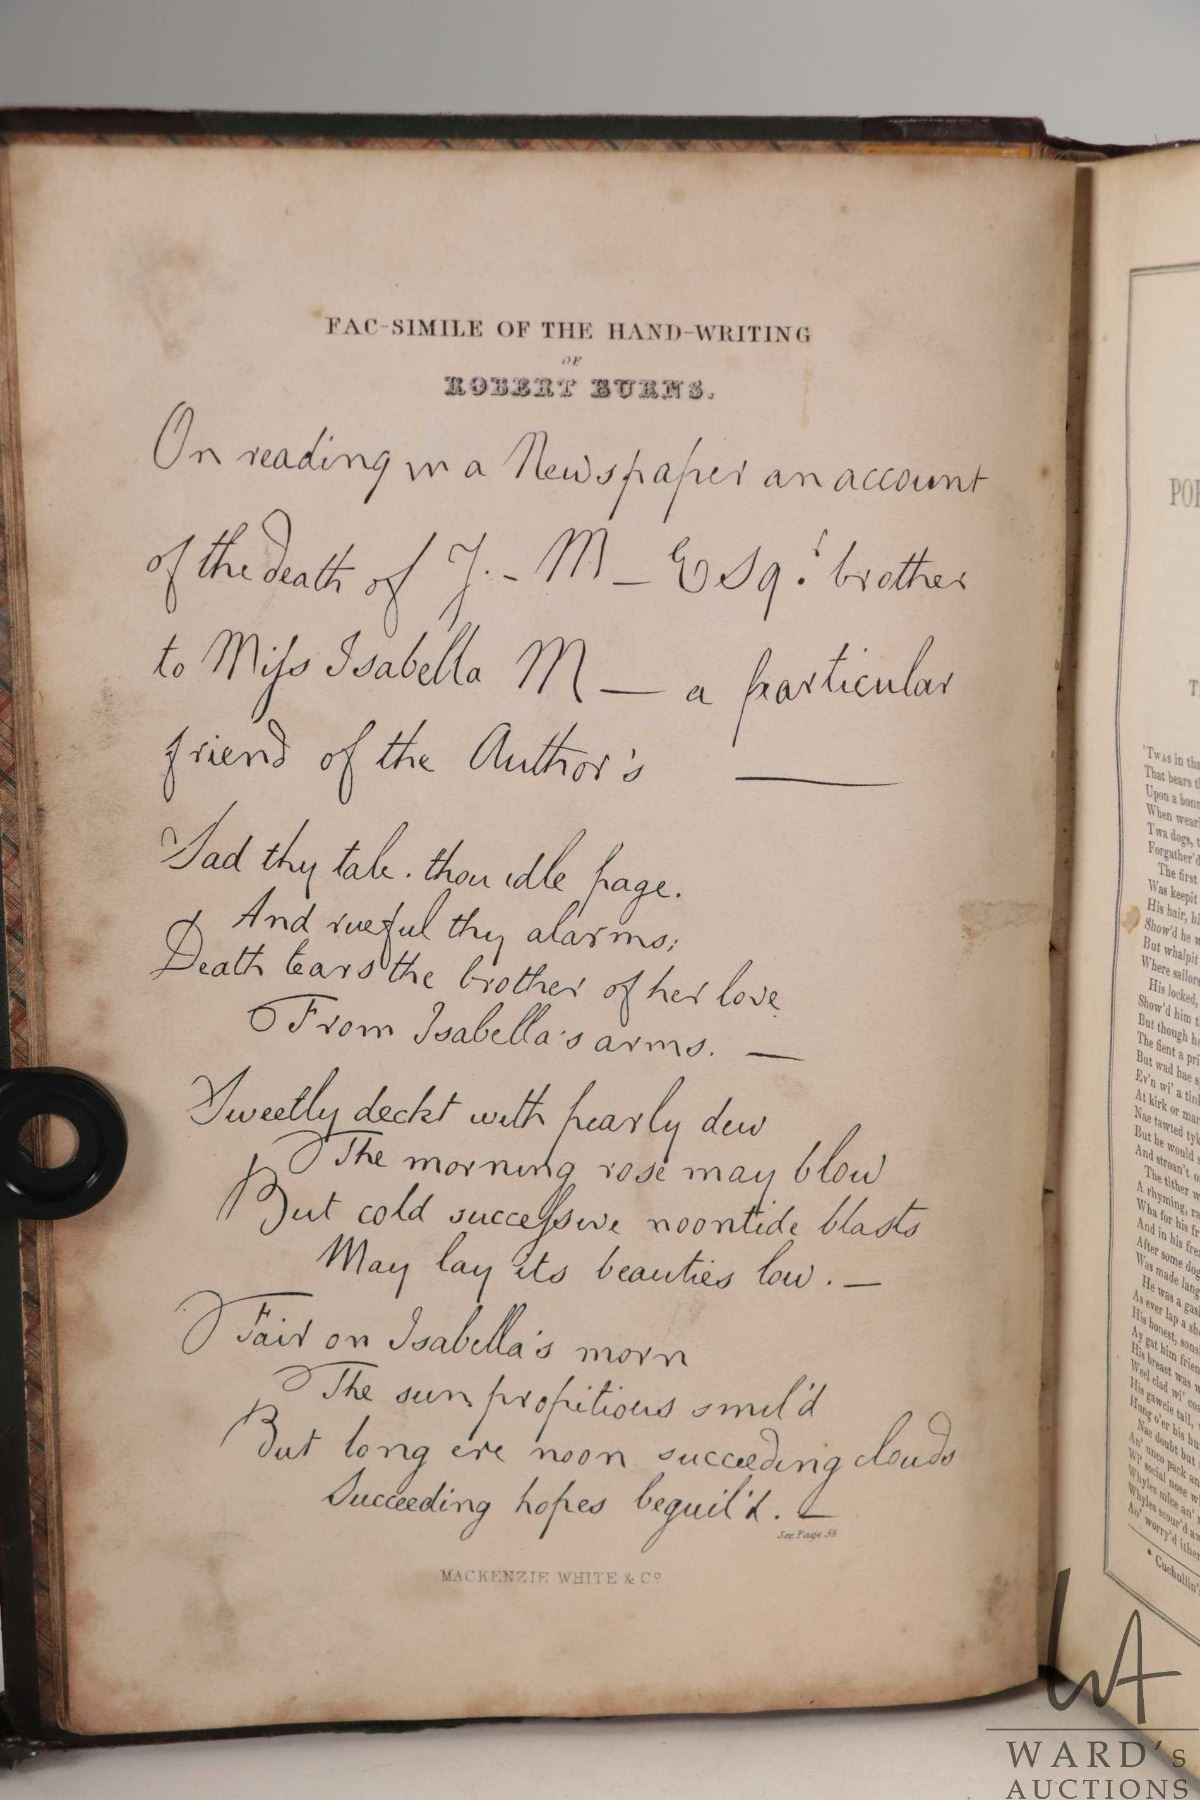 FAC-SIMILE OF THE HAND-WRITING
OF
ROBERT BURNS.
On reading in a Newspaper an account
of the death of J.- M- Esq.r brother
to Miſs Isabella M— a particular
friend of the Author's —
Sad thy tale. thou idle page.
And rueful thy alarms;
Death tears the brother of her love
From Isabella's arms. —
Sweetly deckt with pearly dew
The morning rose may blow
But cold succeſsive noontide blasts
May lay its beauties low. —
Fair on Isabella's morn
The sun propitious smil'd
But long ere noon succeeding clouds
Succeeding hopes beguil'd. —
See Page 58
MACKENZIE WHITE & Co
'TWAS in tha
That bears t
Upon a bonn
When wear
Twa dogs, t
Forgather'd
The first
Was keepit
His hair, hi
Show'd he w
But whalpit
Where sailors
His locked,
Show'd him t
But though he
The fient a pri
But wad hae s
Ev'n wi' a tinl
At kirk or mar
Nae tawted tyk
But he would s
And stroan't o
The tither w
A rhyming, ra
Wha for his fr
And in his fre
After some dog
Was made lang
He was a gas
As ever lap a sh
His honest, sons
Ay gat him frien
His breast was w
Weel clad wi' coa
His gawcie tail,
Hung o'er his hu
Nae doubt but
An' unco pack an
Wi' social nose w
Whyles mice an'
Whyles scour'd aw
An' worry'd ither
* Cuchullin'
WA
WARD'S
AUCTIONS